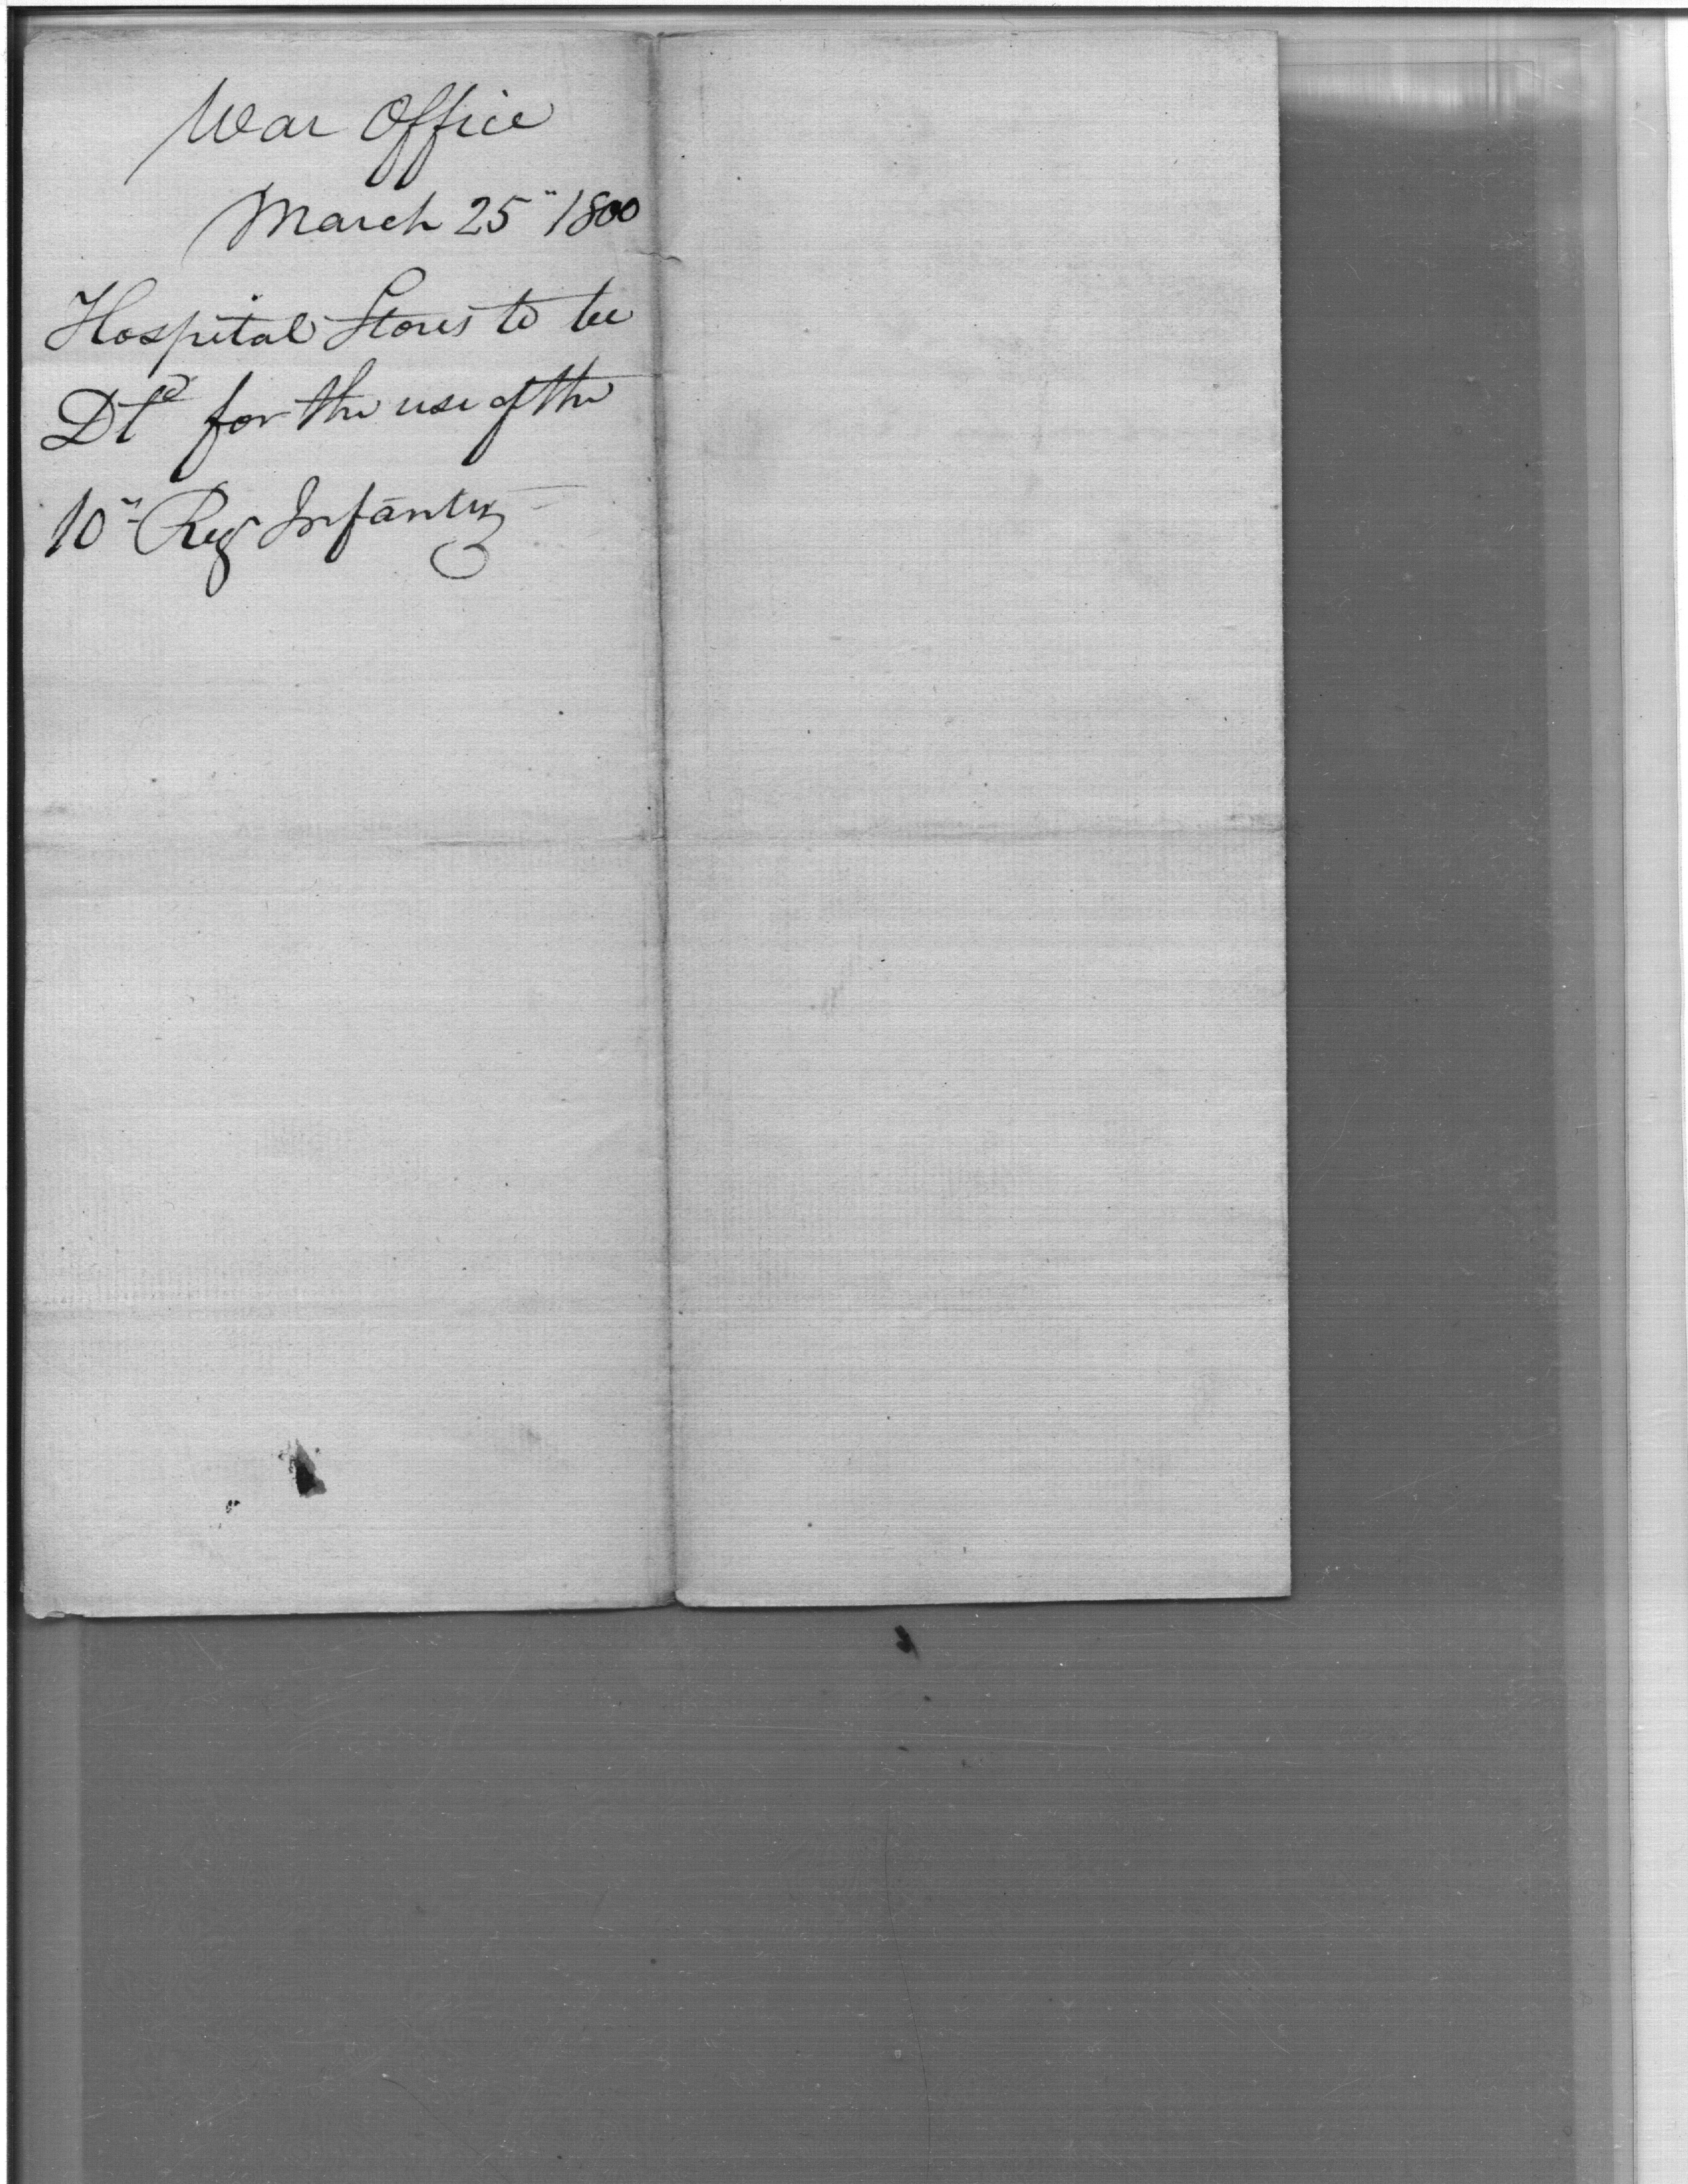 War Office
March 25" 1800
Hospital Stores to be
Dld for the use of the
10" Reg Infantry